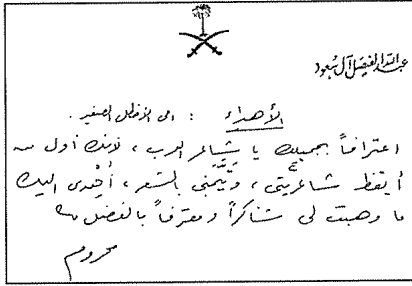 عبدالله الفيصل آل سعود
الأهداء : الى الأخطل الصغير .
اعترافاً بجميلك يا شاعر العرب ، لأنك أول من
أيقظ شاعريتي ، وتيّمني بالشعر ، أُهدى اليك
ما وهبت لى شاكراً ومعترفاً بالفضل
محروم